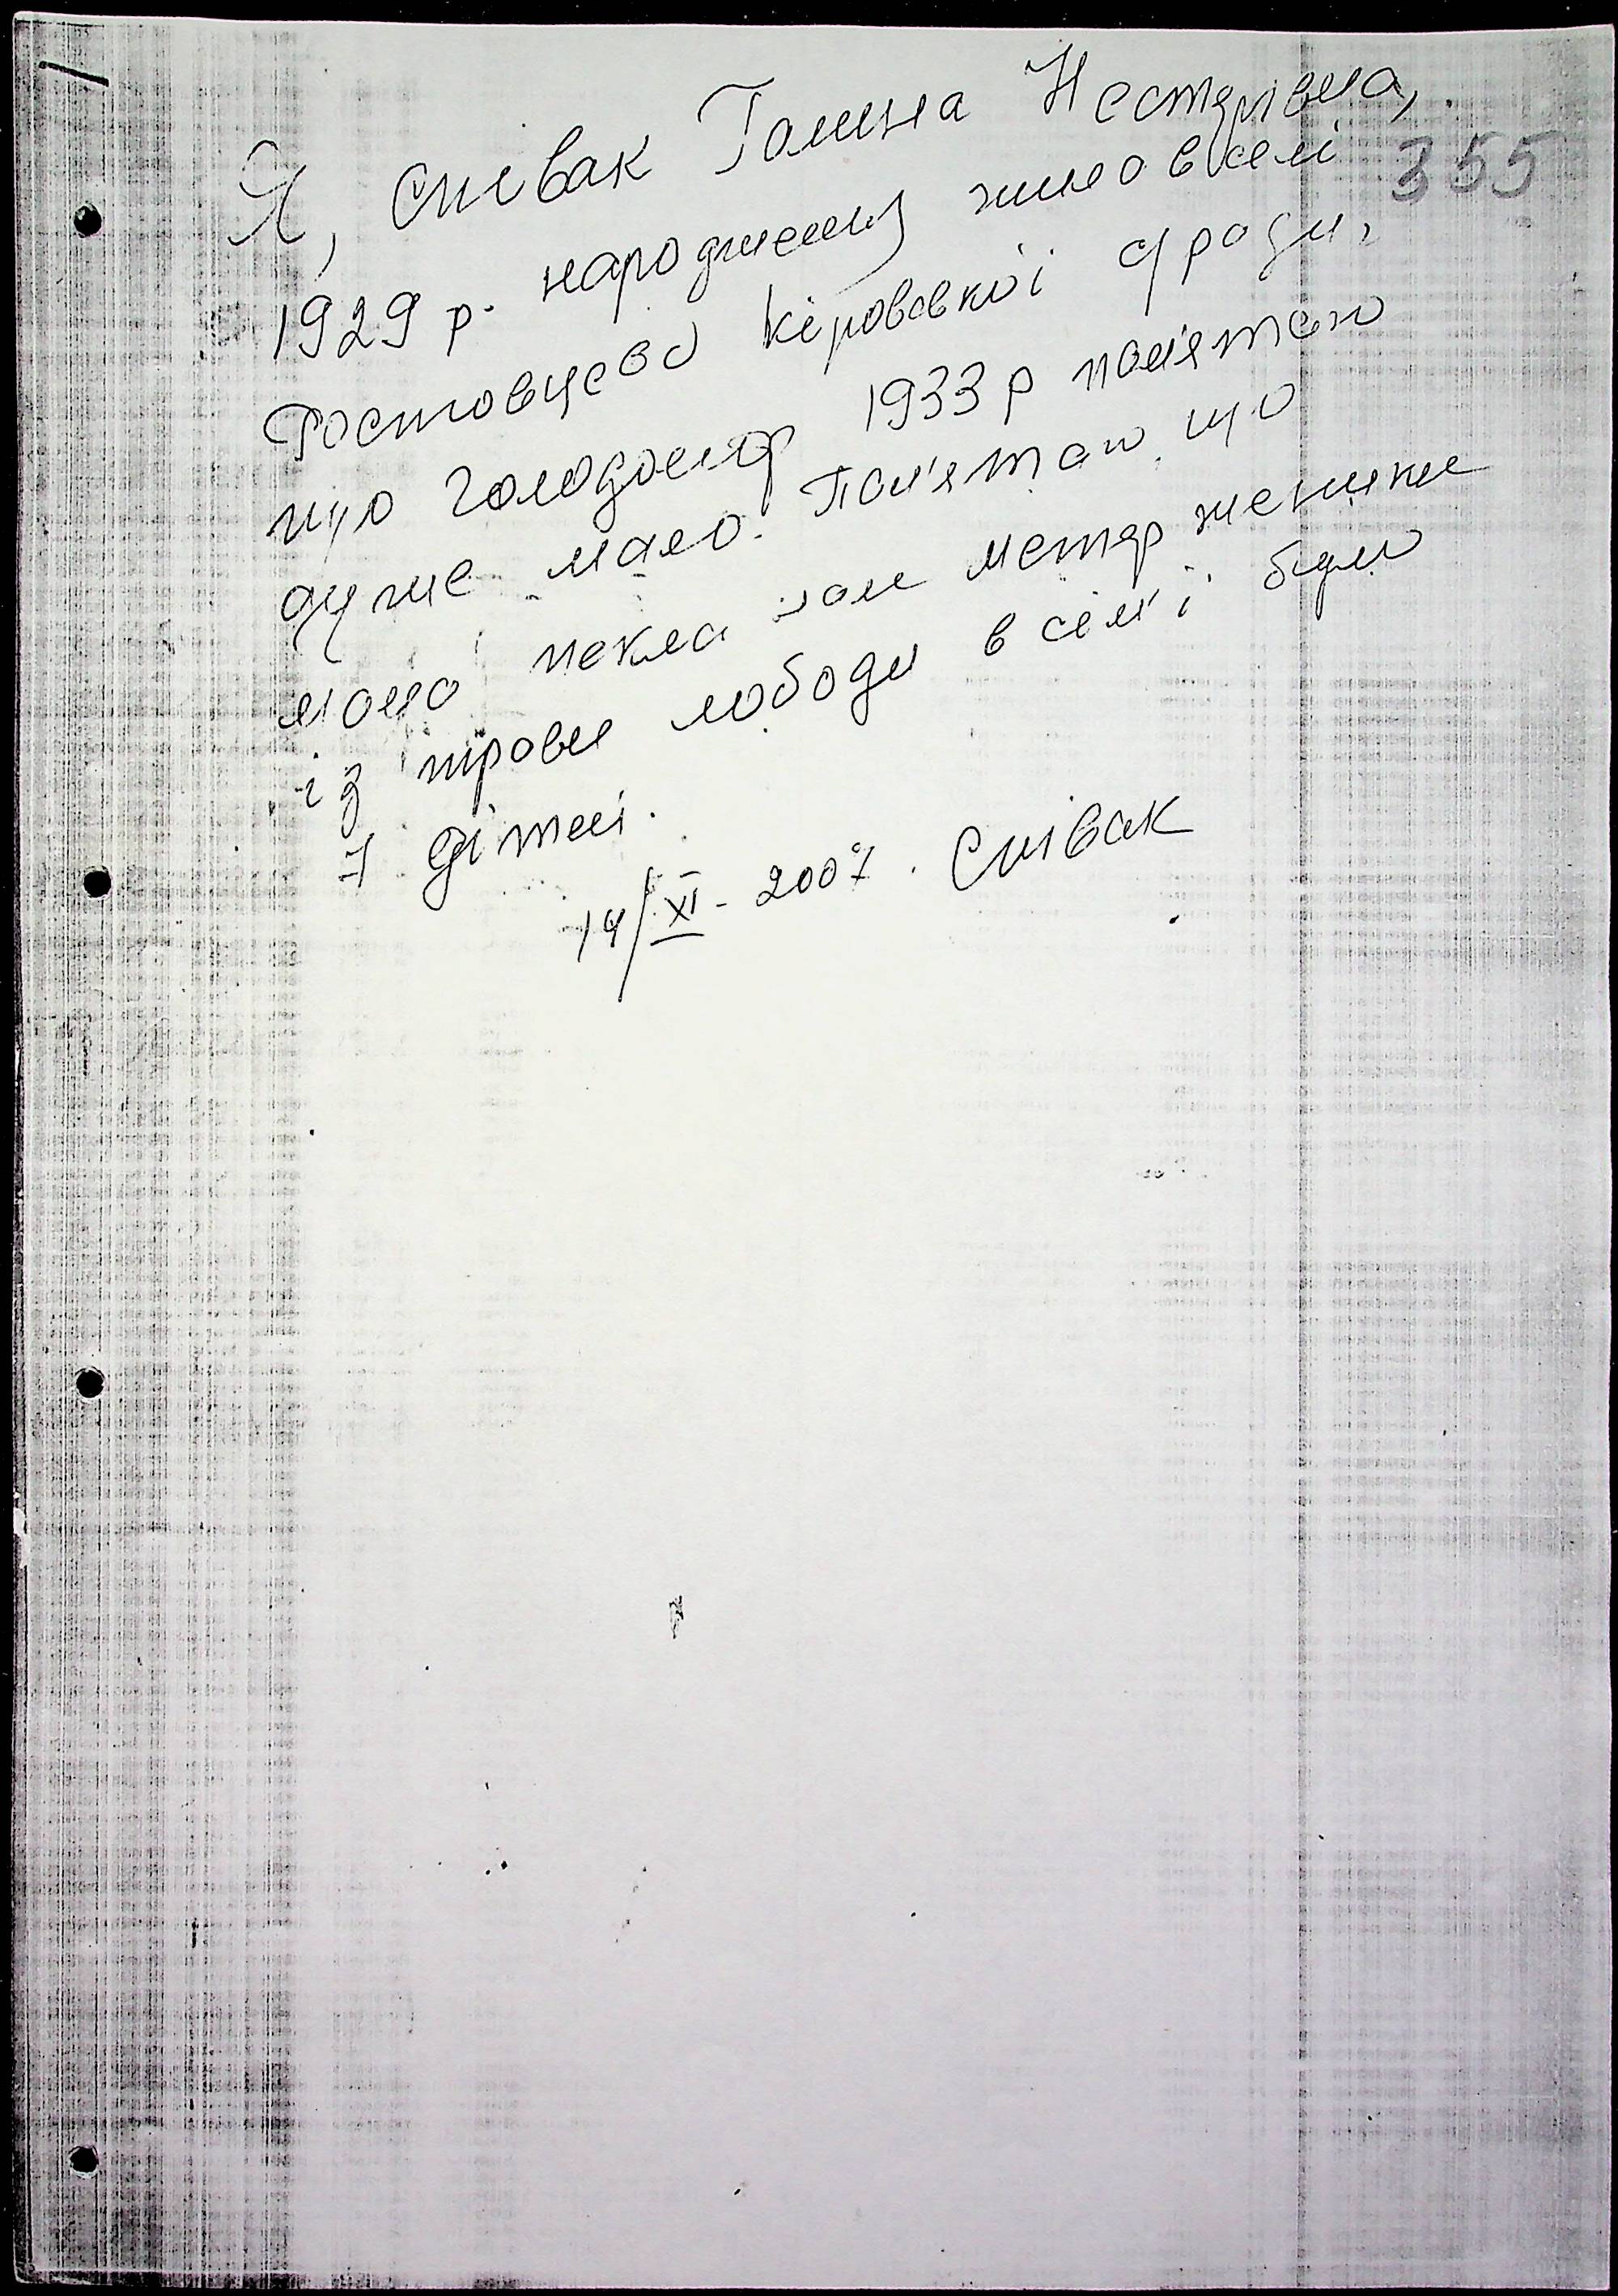 Я, Співак Галина Нестерівна,
355
1929 р. народження жила в селі
Ростовцево Кіровської с/ради,
про голодомор 1933 р пам'ятаю
дуже мало. Пам'ятаю, що
мама пекла нам
із трави лободи в сім'ї було
7 дітей.
14/XI - 2007. Співак